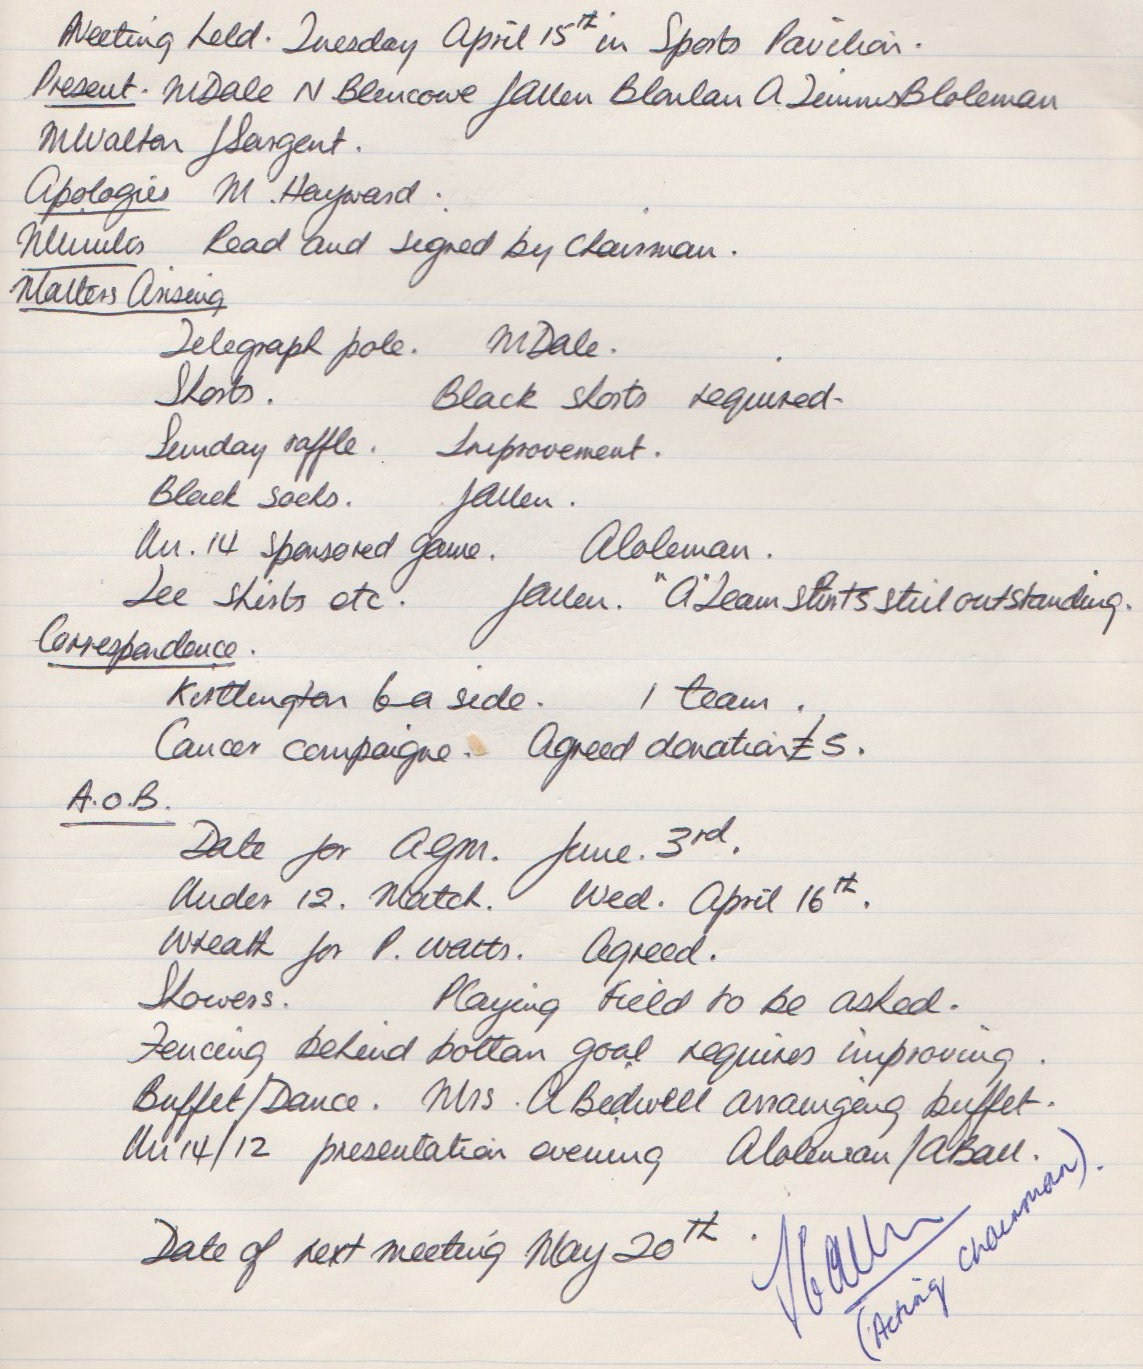 Meeting held. Tuesday April 15th in Sports Pavilion.
Present. M Dale N Blencowe J Allen B Conlan A Timms B Coleman
M Walton J Sargent.
Apologies M. Hayward.
Minutes Read and signed by Chairman.
Matters Arising
Telegraph pole. M Dale.
Shorts. Black shorts required-
Sunday raffle. Improvement.
Black socks. J Allen.
Un. 14 sponsored game. A Coleman.
Tee shirts etc. J Allen. "A" Team shirts still outstanding.
Correspondence.
Kirtlington 6 a side. 1 team.
Cancer campaigne. Agreed donation £5.
A.O.B.
Date for AGM. June. 3rd.
Under 12. Match. Wed. April 16th.
Wreath for P. Watts. Agreed.
Showers. Playing Field to be asked.
Fencing behind bottom goal requires improving.
Buffet/Dance. Mrs. A Bedwell arranging buffet.
Un 14/12 presentation evening A Coleman/A Ball.
Date of next meeting May 20th.
(Acting Chairman).